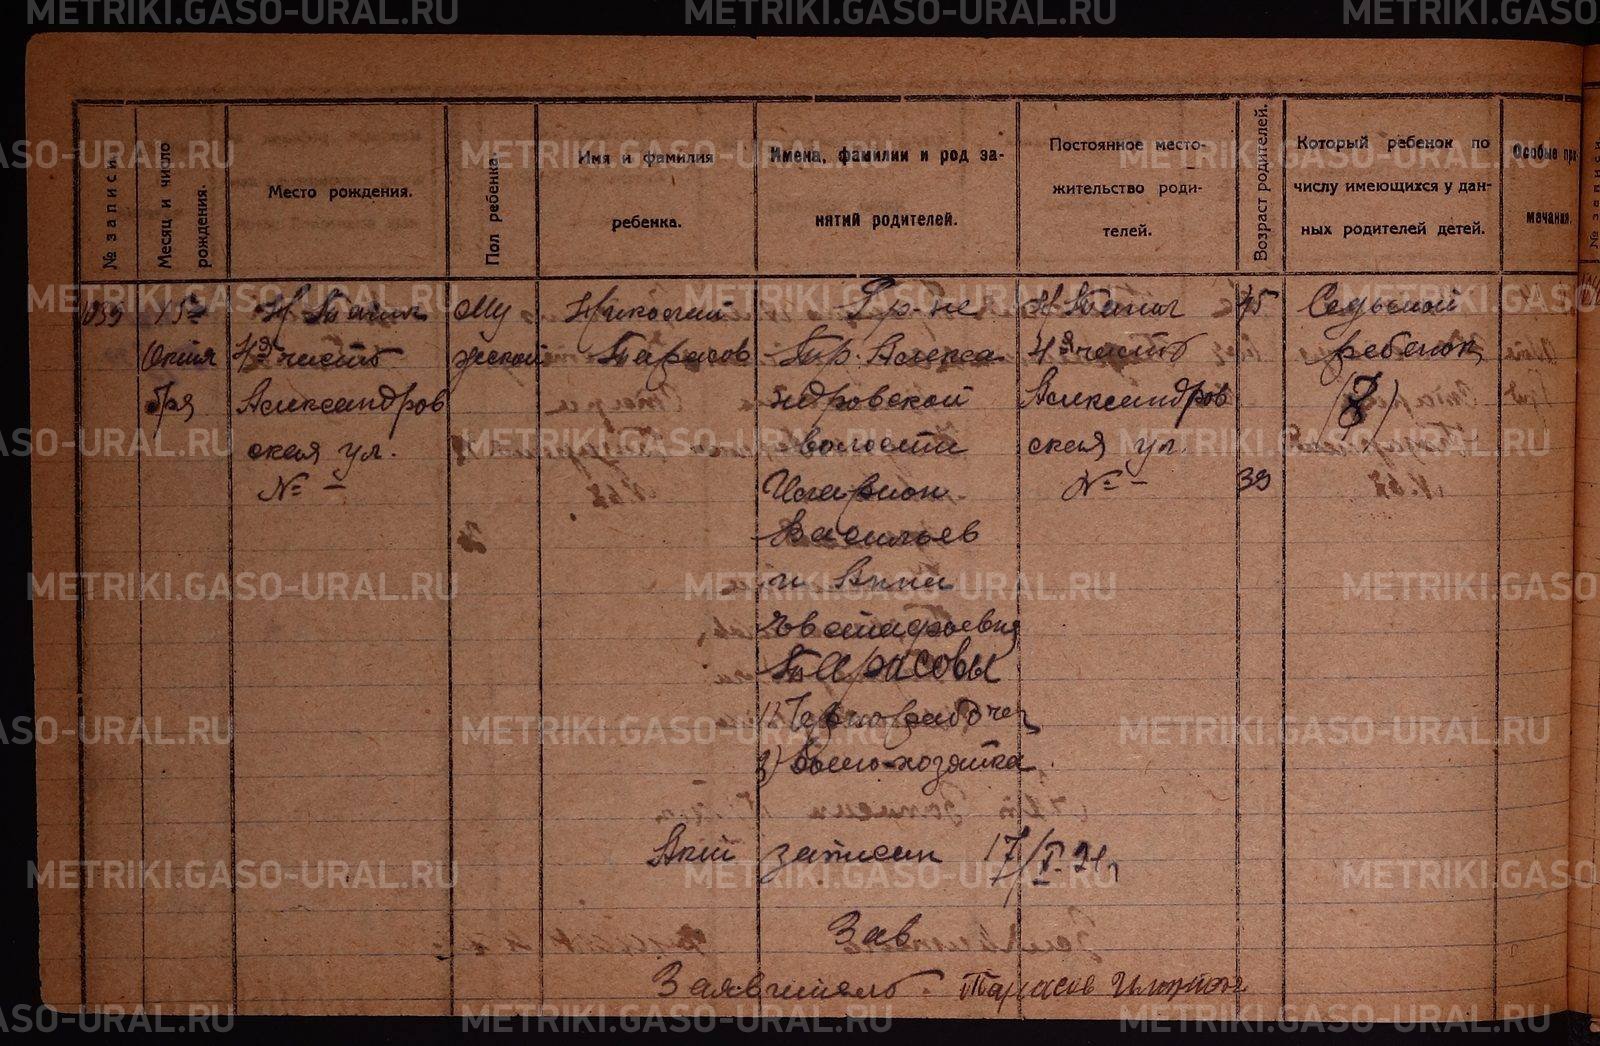 № записи
Месяц и число рождения.
Место рождения.
Пол ребенка.
Имя и фамилия
ребенка.
Имена, фамилии и род за-
нятий родителей.
Постоянное место-
жительство роди-
телей.
Возраст родителей.
Который ребенок по
числу имеющихся у дан-
ных родителей детей.
Особые при-
мечания.
15
Октя
бря
Н Тагил
4я часть
Александров
ская ул.
№ –
Му
жской
Николай
Тарасов
Гр-не
Алекса
ндровской
волости
Иларион
Васильев
и Анна
Евстафьевна
Тарасовы
1) Чернорабочий
2) Домохозяйка.
Н Тагил
4я часть
Александров
ская ул.
№ –
45
39
Седьмой
ребенок
(7)
Акт записан 17/I-24г
Зав
Заявитель: Тарасов Иларион
METRIKI.GASO-URAL.RU